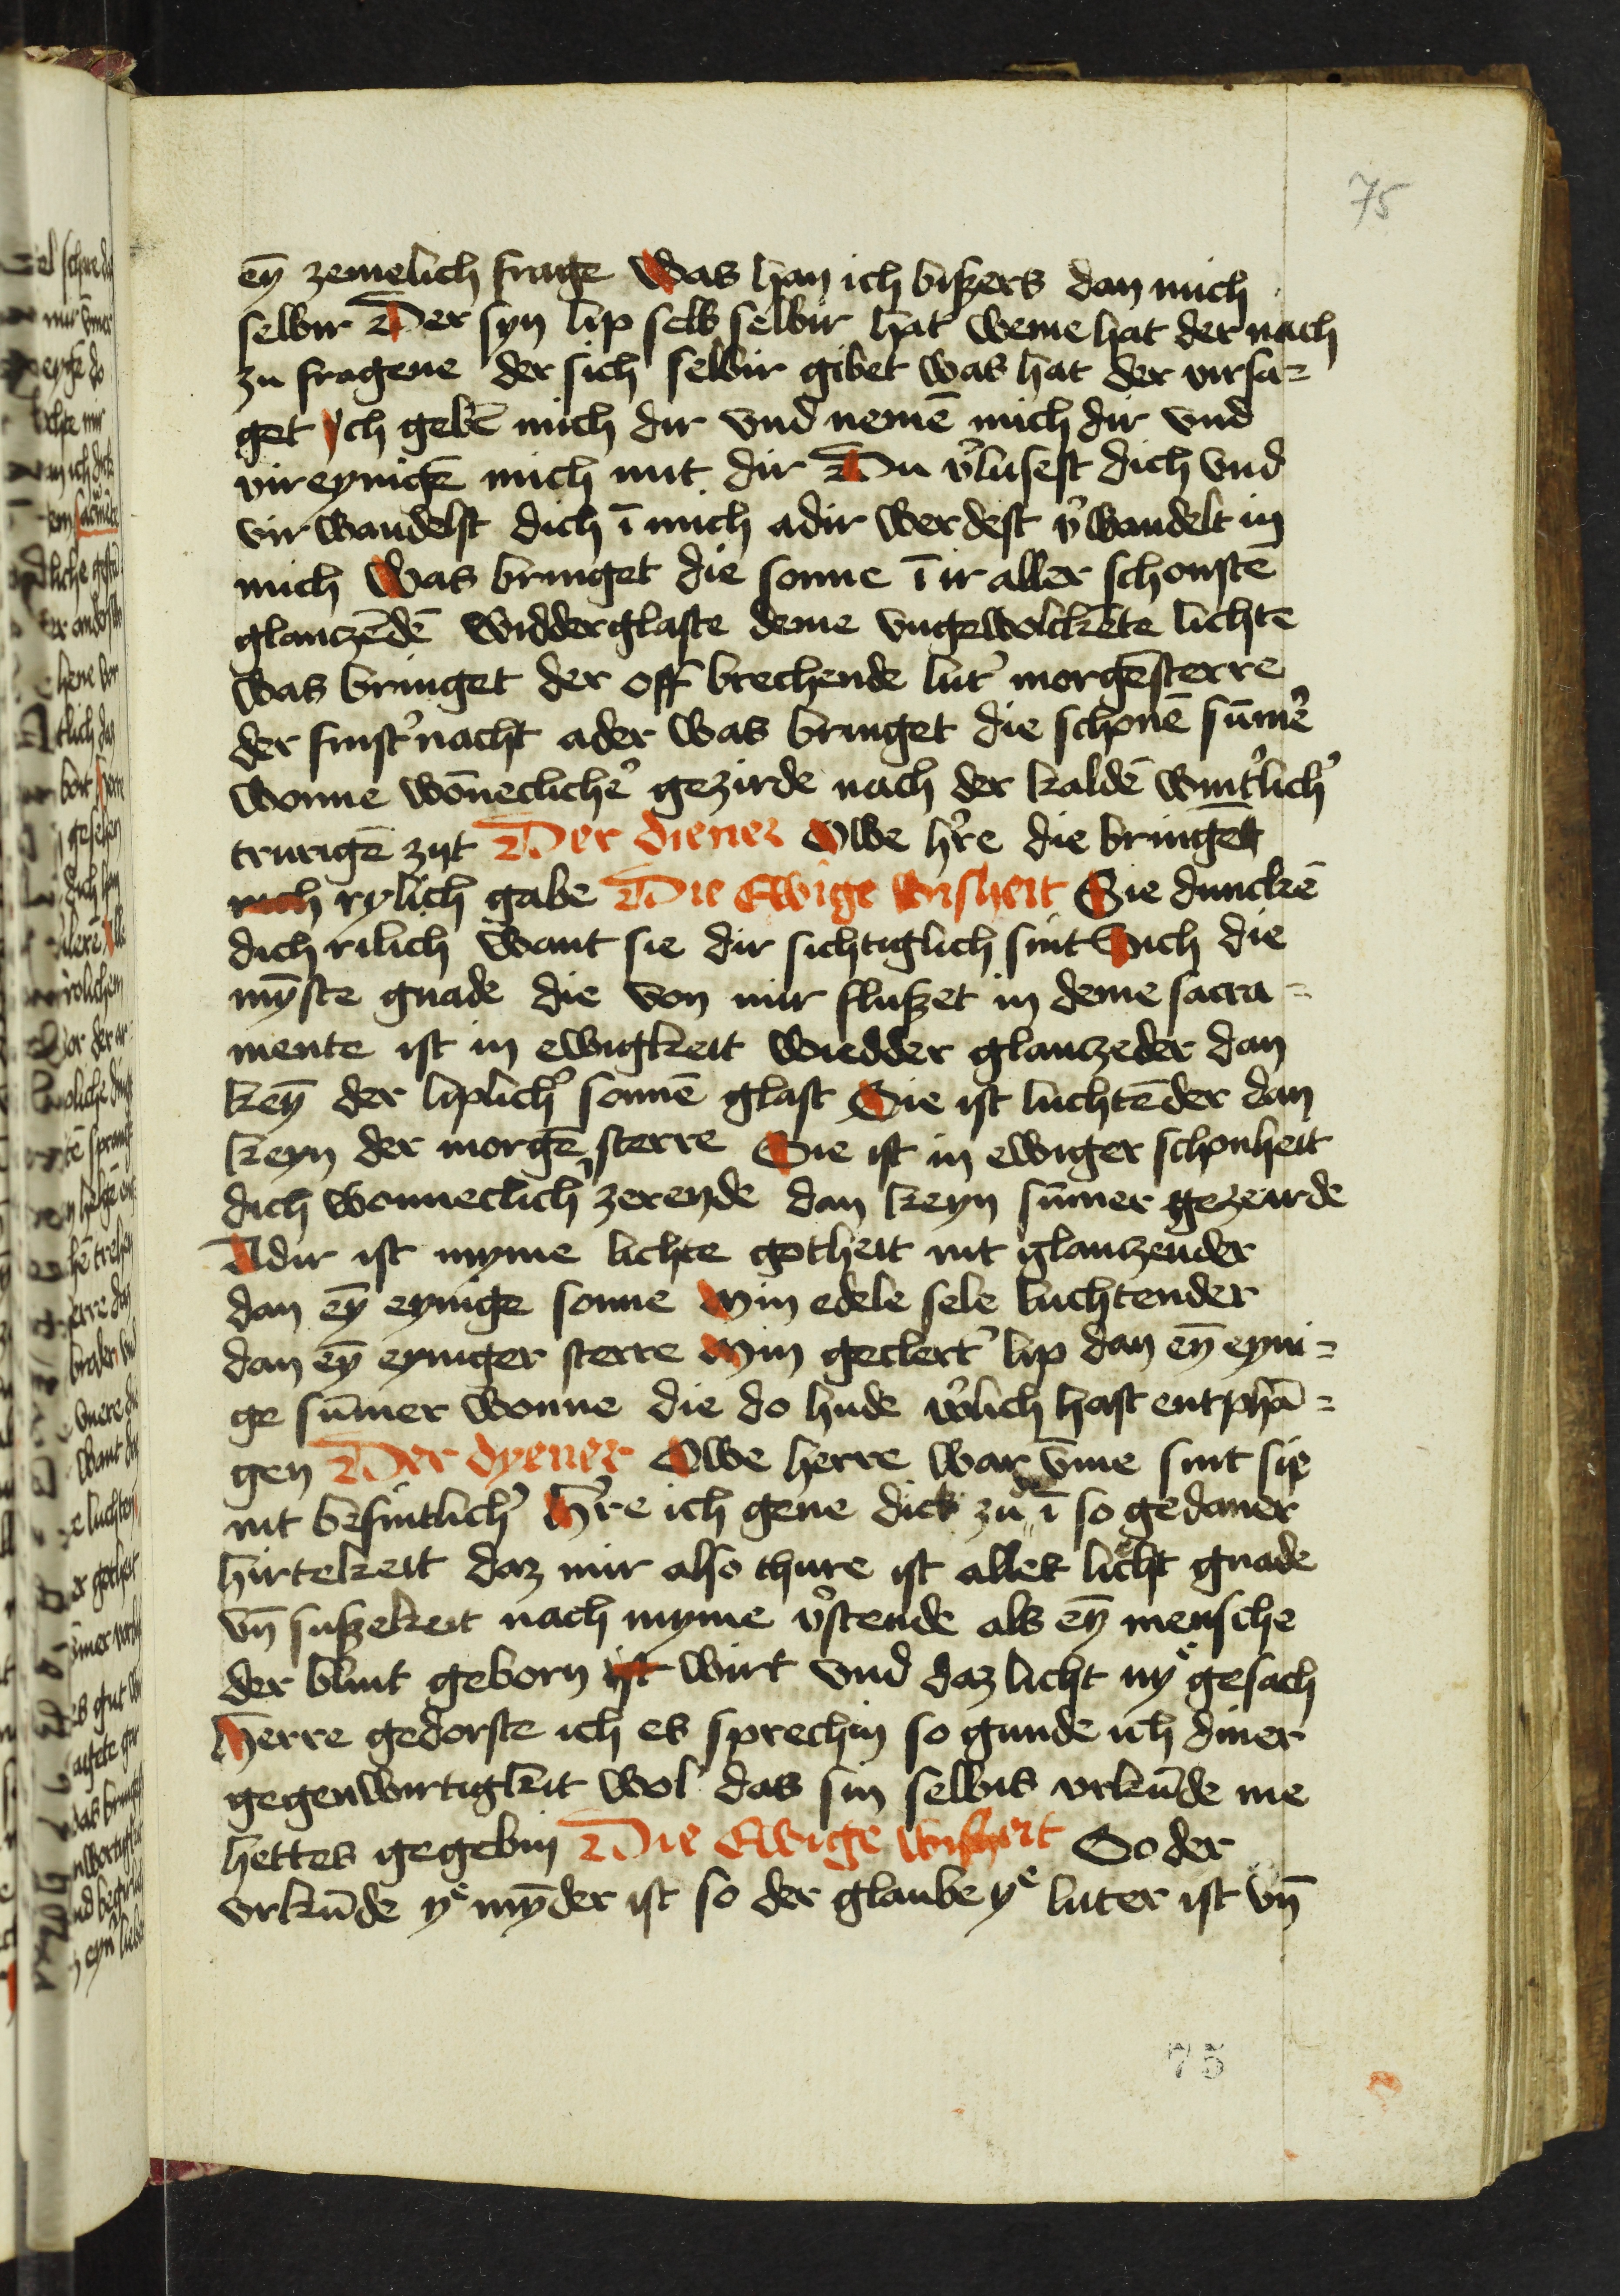 75
eȳ zemelich frage Was han ich bißers dan mich
selbir Der syn lip selb selbir hat weme hat der nach
zu fragene der sich selbir gibet was hat der virsa=
get ych gebē mich dir vnd nemē mich dir vnd
vireynickē mich mit dir Du v'lusest dich vnd
vir wandelst dich ī mich adir werdest v'wandelt in
mich Was bringet die sonne ī ir aller schonstē
glanczēdē widderglaste deme vngewolckēte lichtē
was bringet der off brechende lut' morgēsterre
der finst' nacht ader was bringet die schonē sūm'e
wonne wōnecliche' gezirde nach der kaldē wint'lich'
trurigē zijt Der diener Owe h're die bringēt
rich rylich gabe Die Ewige wisheit Sie dunckē
dich rilich want sie dir sichtiglich sint Sich die
mȳste gnade die von mir flußet in deme sacra=
mente ist in ewigkeit wiedder glanczeder dan
keȳ der liplich' sonnē glast Sie ist luchtēder dan
keyn der morgē sterre Sie ist in ewiger schonheit
dich wonneclich' zerende dan keyn sūmer gezeirde
Adir ist myme lichte gotheit nit glanczender
dan eȳ eynige sonne Min edele sele luchtender
dan eȳ eyniger sterre Min geclert' lip dan eȳ eyni=
ge sūmer wonne die do hude v'lich hast entphā=
gen Der dyener Owe herre war v̄me sint sie
nit befintlich' H're ich gene dick zu ī so gedaner
hirtekeit daz mir also thure ist alles licht gnade
vn̄ sußekeit nach myme v'stende als eȳ mensche
der blint geborn ist wirt vnd daz licht nye gesach
Herre gedorste ich es sprechin so gunde ich diner
gegenwirtigkit wol das sin selbis vrkūde me
hettes gegebin Die Ewige wisheit So der
vrkūde ye mȳder ist so der glaube ye luter ist vn̄
75